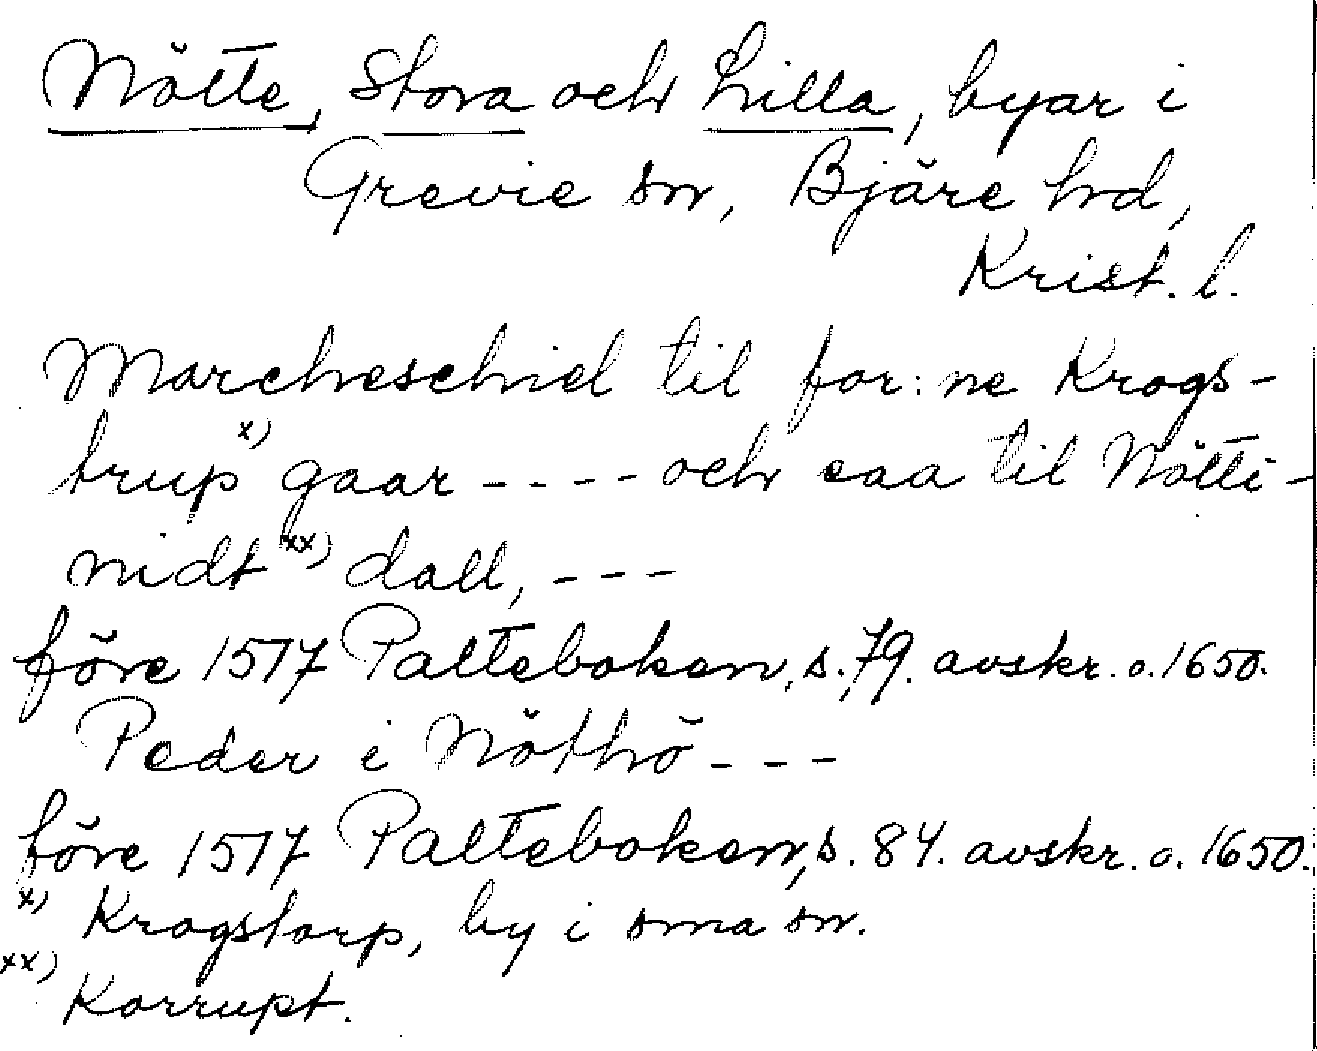 Nötte, Stora och Lilla, byar i
Grevie sn, Bjäre hd,
Krist. l.
Marcheschiel til for:ne Krogs-
trup x) gaar ---- och saa til Nötti-
nidt xx) dall, ---
före 1517 Palteboken, s. 79. avskr. o. 1650.
Peder i Nöthö ---
före 1517 Palteboken, s. 84. avskr. o. 1650.
x) Krogstorp, by i sma sn.
xx) Korrupt.